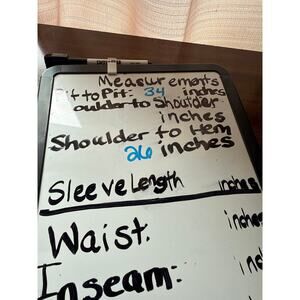 Measurements
Pit to Pit: 34 inches
Shoulder to Shoulder
inches
Shoulder to Hem
26 inches
Sleeve Length inches
Waist. inches
Inseam: inches